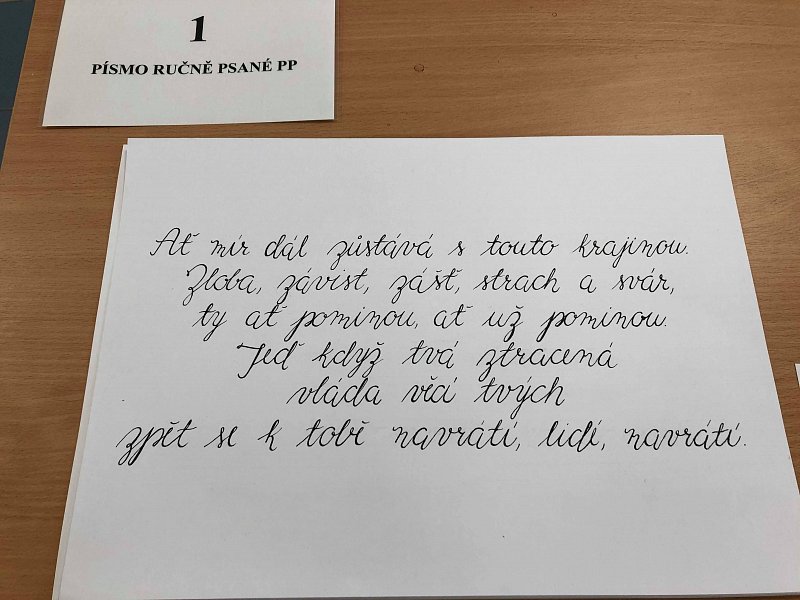 1
PÍSMO RUČNĚ PSANÉ PP
Ať mír dál zůstává s touto krajinou.
Zloba, závist, zášť, strach a svár,
ty ať pominou, ať už pominou.
Teď když tvá ztracená
vláda věcí tvých
zpět se k tobě navrátí, lidí, navrátí.